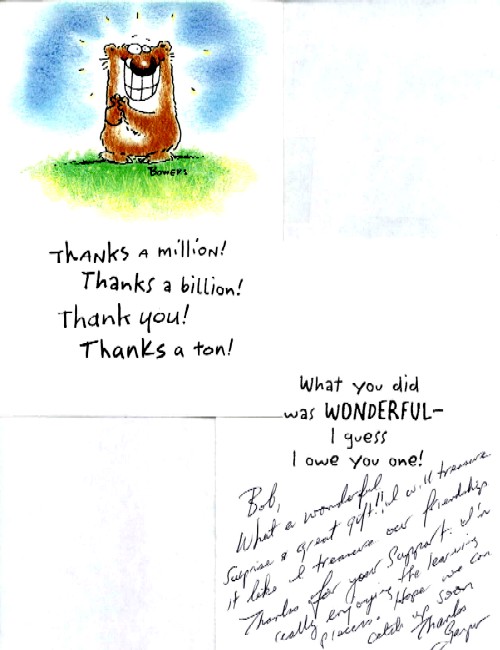 BOWERS
Thanks a million!
Thanks a billion!
Thank you!
Thanks a ton!
What you did
was WONDERFUL-
I guess
I owe you one!
Bob,
What a wonderful
surprise & great gift!! I will treasure
it like I treasure our friendship
Thanks for your support. I'm
really enjoying the learning
process. Hope we can
catch up soon
Thanks